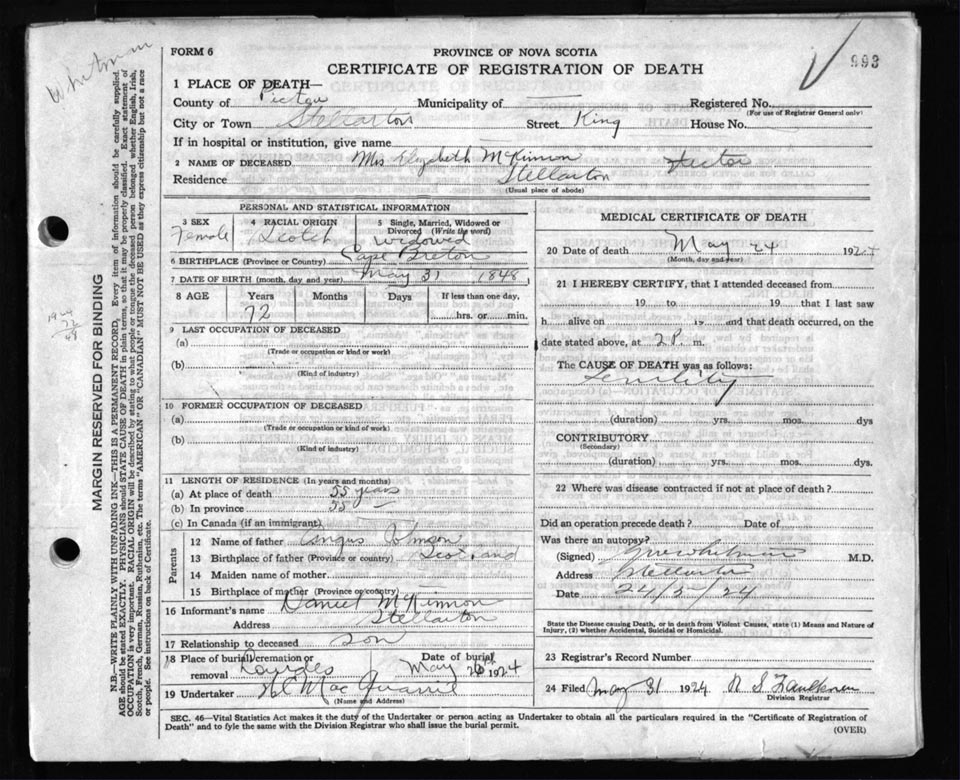 Whitman
993
FORM 6
PROVINCE OF NOVA SCOTIA
CERTIFICATE OF REGISTRATION OF DEATH
1 PLACE OF DEATH—
County of Pictou Municipality of Registered No.
(For use of Registrar General only)
City or Town Stellarton Street King House No.
If in hospital or institution, give name
2 NAME OF DECEASED Mrs Elizabeth McKinnon Hector
Residence Stellarton
(Usual place of abode)
PERSONAL AND STATISTICAL INFORMATION
3 SEX Female
4 RACIAL ORIGIN Scotch
5 Single, Married, Widowed or Divorced (Write the word) Widowed
6 BIRTHPLACE (Province or Country) Cape Breton
7 DATE OF BIRTH (month, day, and year) May 31 1848
8 AGE Years Months Days If less than one day,
72 hrs. or min.
9 LAST OCCUPATION OF DECEASED
(a)
(Trade or occupation or kind or work)
(b)
(Kind of industry)
10 FORMER OCCUPATION OF DECEASED
(a)
(Trade or occupation or kind or work)
(b)
(Kind of industry)
11 LENGTH OF RESIDENCE (In years and months)
(a) At place of death 55 years
(b) In province 55
(c) In Canada (if an immigrant)
Parents
12 Name of father Angus Johnson
13 Birthplace of father (Province or country) Scotland
14 Maiden name of mother
15 Birthplace of mother (Province or country)
16 Informant's name Daniel McKinnon
Address Stellarton
17 Relationship to deceased son
18 Place of burial cremation or removal Lourdes Date of burial May 26 1924
19 Undertaker MacQuarrie
(Name and Address)
MEDICAL CERTIFICATE OF DEATH
20 Date of death May 24 192
(Month, day and year)
21 I HEREBY CERTIFY, that I attended deceased from
19 to 19 that I last saw
h alive on 19 and that death occurred, on the
date stated above, at 2 P. m.
The CAUSE OF DEATH was as follows:
Senility
(duration) yrs. mos. dys
CONTRIBUTORY
(Secondary)
(duration) yrs. mos. dys.
22 Where was disease contracted if not at place of death?
Did an operation precede death? Date of
Was there an autopsy?
(Signed) Whitman M.D.
Address Stellarton
Date 24/5/24
State the Disease causing Death, or in death from Violent Causes, state (1) Means and Nature of
Injury, (2) whether Accidental, Suicidal or Homicidal.
23 Registrar's Record Number
24 Filed May 31 1924 R S Faulkner
Division Registrar
SEC. 46—Vital Statistics Act makes it the duty of the Undertaker or person acting as Undertaker to obtain all the particulars required in the "Certificate of Registration of
Death" and to fyle the same with the Division Registrar who shall issue the burial permit.
(OVER)
MARGIN RESERVED FOR BINDING
N.B.—WRITE PLAINLY WITH UNFADING INK—THIS IS A PERMANENT RECORD. Every item of information should be carefully supplied.
AGE should be stated EXACTLY. PHYSICIANS should STATE CAUSE OF DEATH in plain terms, so that it may be properly classified. Exact statement of
OCCUPATION is very important. RACIAL ORIGIN will be described by stating to what people or tongue the deceased person belonged whether English, Irish,
Scotch, French, German, Russian, Ruthenian, etc. The terms "AMERICAN" OR "CANADIAN" MUST NOT BE USED as they express citizenship but not a race
or people. See instructions on back of Certificate.